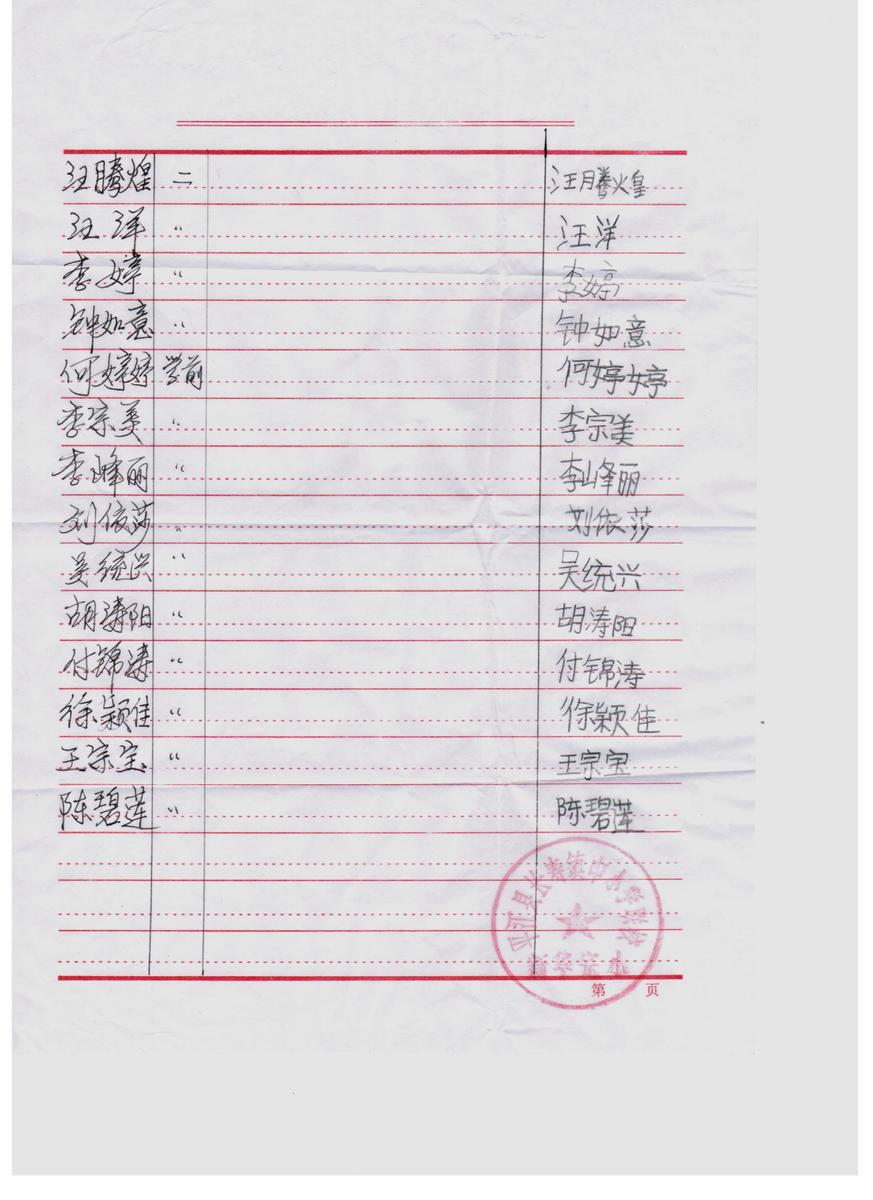 汪腾煌 二 汪腾煌
汪洋 〃 汪洋
李婷 〃 李婷
钟如意 〃 钟如意
何婷婷 学前 何婷婷
李宗美 〃 李宗美
李峰丽 〃 李峰丽
刘依莎 〃 刘依莎
吴统兴 〃 吴统兴
胡涛阳 〃 胡涛阳
付锦涛 〃 付锦涛
徐颖佳 〃 徐颖佳
王宗宝 〃 王宗宝
陈碧莲 〃 陈碧莲
平江县长寿镇中心学校
完小
第 页